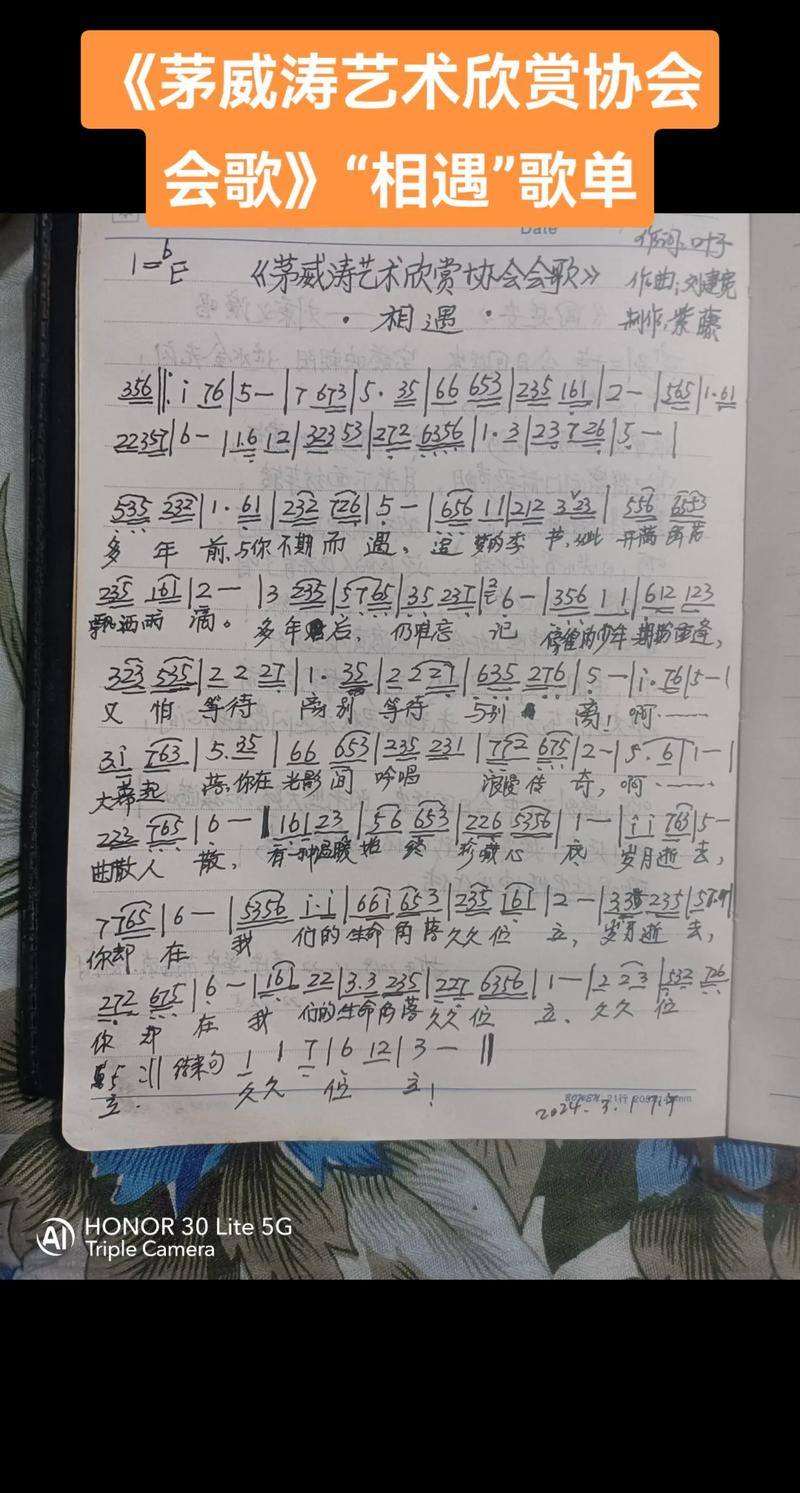 《茅威涛艺术欣赏协会
会歌》“相遇”歌单
Date
作词:叶子
1=ᵇE 《茅威涛艺术欣赏协会会歌》
作曲:刘建宽
·相遇·
制作:紫藤
356‖: i 76|5-|7 673|5· 35|66 653|235 161|2-|565|1·61
22357|6-|1.6 12|323 53|272 6356|1·3|23 726|5-|
535 232|1· 61|232 726|5-|656 11|212 323|556 6553
多 年 前,与你不期而 遇。追 梦的季 节,从此 开满
235 161|2-|3 235|5765|35 237|6-|356 11|612 123
飘洒雨 滴。 多年 后, 仍难忘 记 的少年 期盼重逢,
323 535|2 2 27|1· 35|2 227|635 276|5-|i·76|5-|
又 怕 等待 离别 等待 与别 离!啊·······
3i 763|5.35|66 653|235 231|772 675|2-|5·6|1-|
大幕起 落,你在 光影间 吟唱 浪漫传 奇,啊·······
223 765|6-|161 23|56 653|226 5356|1-|i i 763|5-
曲散人 散, 有一种温暖 始 终 珍藏心 底 岁月逝 去,
7765|6-|5356 i·i|66i 653|235 161|2-|335 235|
你却 在 我 们的生命角落 久久位 立, 岁月逝 去,
272 675|6-|161 22|3.3 235|227 6356|1-|2 23|532 76
你 却 在 我 们的生命角落 久久 位 立、久久 位
5 :‖ 结束句 1 1 7|6 12|3-‖
立. 久久 位 立!
2024.3.1
HONOR 30 Lite 5G
Triple Camera